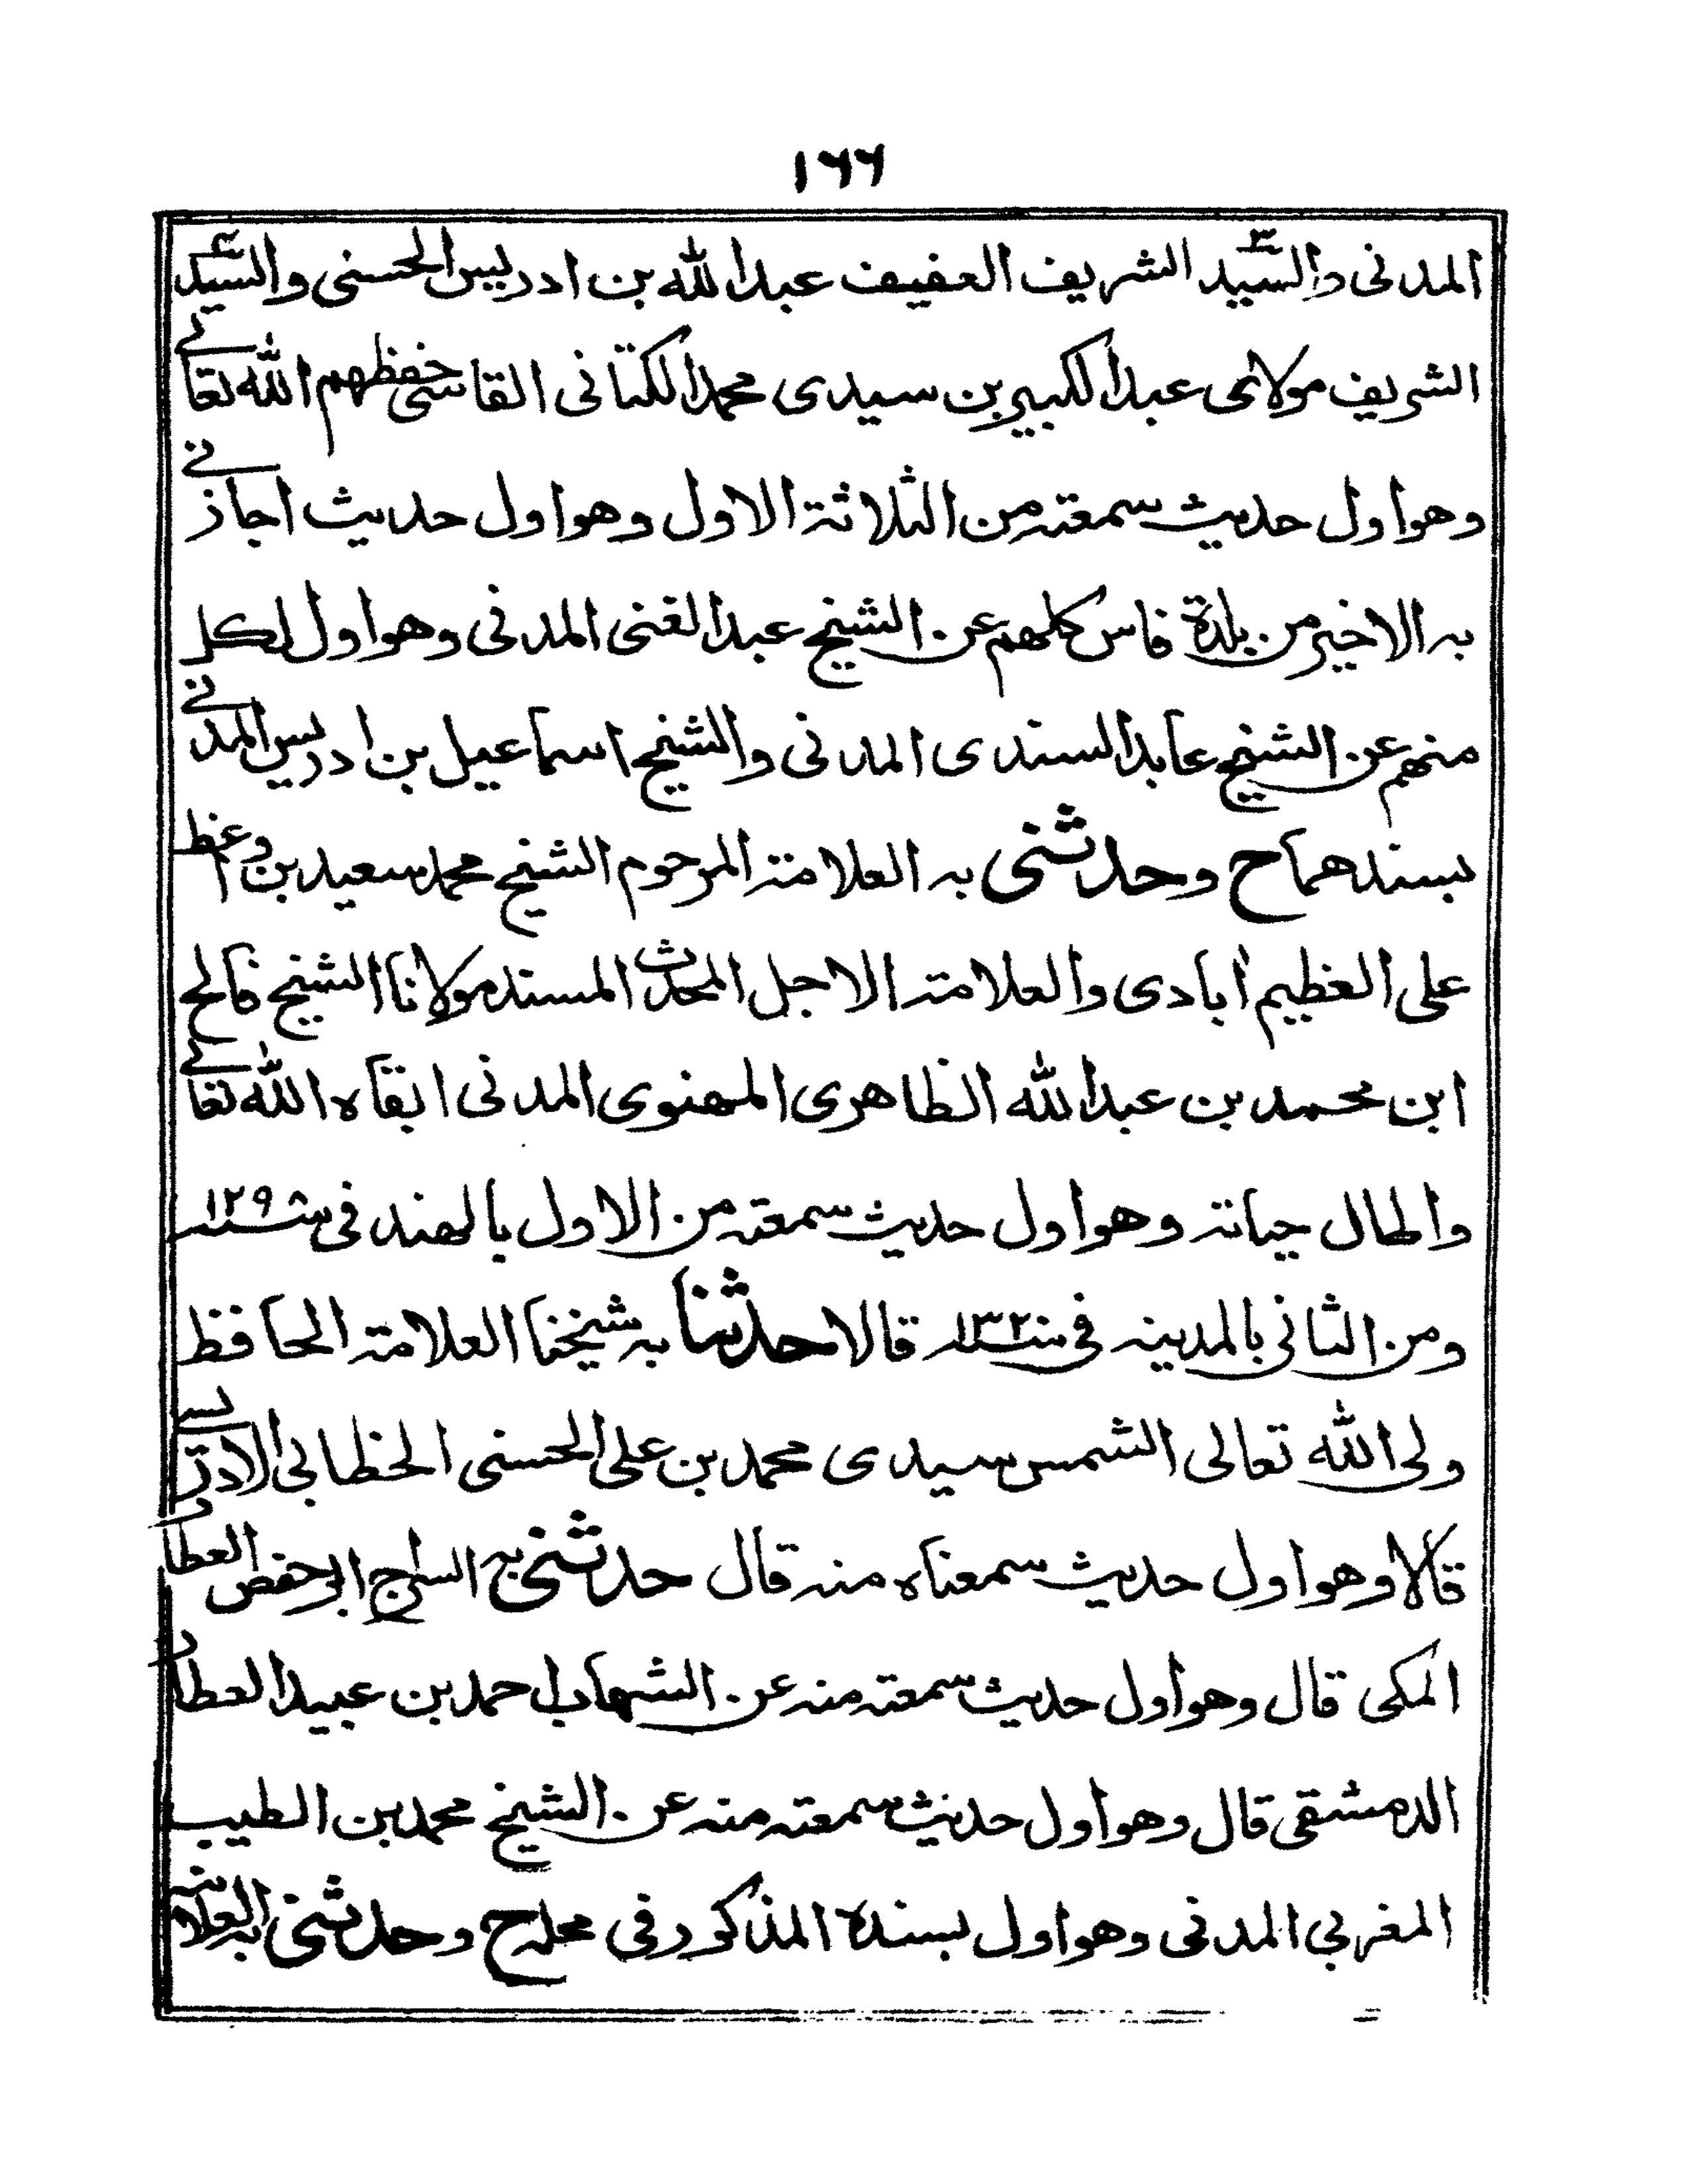 ١٦٦
المدنی والسید٣ الشریف العفیف عبدالله بن ادریس الحسنی والسید٤
الشریف مولای عبدالکبیر بن سیدی محمد الکتانی الفاسی حفظهم الله تعالے
وهو اول حدیث سمعته من الثلاثة الاول وهو اول حدیث اجازنے
به الاخیر من بلدة فاس کلهم عن الشیخ عبدالغنی المدنی وهو اول لکل
منهم عن الشیخ عابد السندی المدنی والشیخ اسماعیل بن ادریس المدنے
بسندهما ح وحدثنی به العلامة المرحوم الشیخ محمد سعید بن واعظ
علی العظیم آبادی والعلامة الاجل المحدث المسند مولانا الشیخ فالح
ابن محمد بن عبدالله الظاهری المهنوی المدنی ابقاه الله تعالے
واطال حیاته وهو اول حدیث سمعته من الاول بالهند فی سنة ١٢٩
ومن الثانی بالمدینه فی سنة ١٣٢٠ قالا حدثنا به شیخنا العلامة الحافظ
ولی الله تعالی الشمس سیدی محمد بن علی الحسنی الخطابی الادریسے
قالا وهو اول حدیث سمعناه منه قال حدثنی به السراج ابو حفص العطار
المکی قال وهو اول حدیث سمعته منه عن الشهاب احمد بن عبید العطار
الدمشقی قال وهو اول حدیث سمعته منه عن الشیخ محمد بن الطیب
المغربی المدنی وهو اول بسنده المذکور فی محله ح وحدثنی به العلامة